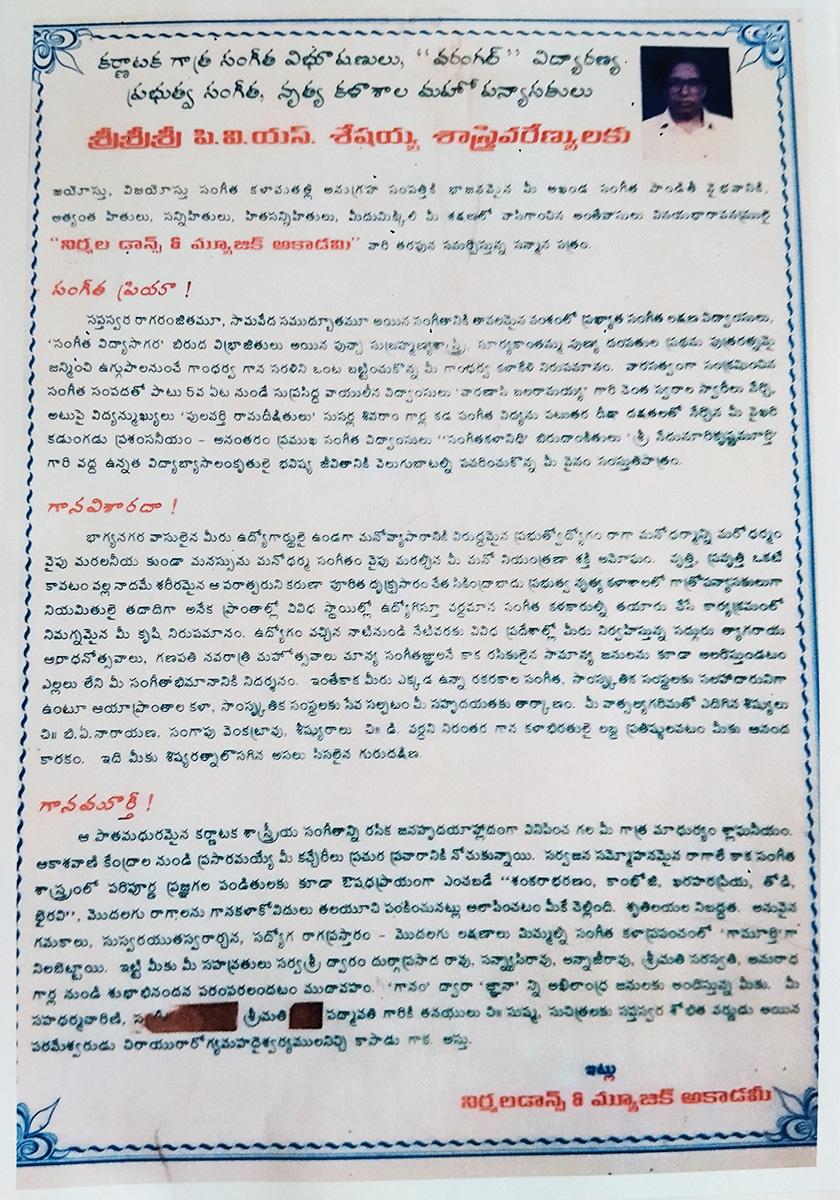 కర్ణాటక గాత్ర సంగీత విభూషణులు, "వరంగల్" విద్యారణ్య
ప్రభుత్వ సంగీత, నృత్య కళాశాల మహోపన్యాసకులు
శ్రీశ్రీశ్రీ పి.వి.యస్. శేషయ్య శాస్త్రివరేణ్యులకు
జయోస్తు, విజయోస్తు సంగీత కళామతల్లి అనుగ్రహ సంపత్తికి భాజనమైన మీ అఖండ సంగీత పాండితీ వైభవానికి,
అత్యంత హితులు, సన్నిహితులు, హితసన్నిహితులు, మీదుమిక్కిలి మీ శిక్షణలో వాసిగాంచిన అంతేవాసులు వినయభారావనమ్రులై
"నిర్మల డాన్స్ & మ్యూజిక్ అకాడమి" వారి తరపున సమర్పిస్తున్న సన్మాన పత్రం.
సంగీత ప్రియా !
సప్తస్వర రాగరంజితమూ, సామవేద సముద్భూతమూ అయిన సంగీతానికి తావలమైన వంశంలో ప్రఖ్యాత సంగీత లక్షణ విద్వాంసులు,
'సంగీత విద్యాసాగర' బిరుద విభ్రాజితులు అయిన పుచ్చా సుబ్రహ్మణ్యశాస్త్రి, సూర్యకాంతమ్మ పుణ్య దంపతుల ప్రథమ పుత్రరత్నమై
జన్మించి ఉగ్గుపాలనుంచే గాంధర్వ గాన సరళిని ఒంట బట్టించుకొన్న మీ గాంధర్వ కళాకేళి నిరుపమానం. వారసత్వంగా సంక్రమించిన
సంగీత సంపదతో పాటు 5వ ఏట నుండే సుప్రసిద్ధ వాయులీన విద్వాంసులు 'వారణాసి బలరామయ్య' గారి చెంత స్వరాల స్వారీలు నేర్చి,
అటుపై విద్వన్ముఖ్యులు 'పులవర్తి రామదీక్షితులు' సుసర్ల శివరాం గార్ల కడ సంగీత విద్యను పటుతర దీక్షా దక్షతలతో నేర్చిన మీ వైఖరి
కడుంగడు ప్రశంసనీయం - అనంతరం ప్రముఖ సంగీత విద్వాంసులు "సంగీతకళానిధి" బిరుదాంకితులు 'శ్రీ నేదునూరికృష్ణమూర్తి'
గారి వద్ద ఉన్నత విద్యాభ్యాసాలంకృతులై భవిష్య జీవితానికి వెలుగుబాటల్ని పవరించుకొన్న మీ పైనం సంస్తుతిపాత్రం.
గానవిశారదా !
భాగ్యనగర వాసులైన మీరు ఉద్యోగార్థులై ఉండగా మనోవ్యాపారానికి విరుద్ధమైన ప్రభుత్వోద్యోగం రాగా మనోధర్మాన్ని మరోధర్మం
వైపు మరలనీయ కుండా మనస్సును మనోధర్మ సంగీతం వైపు మరల్చిన మీ మనో నియంత్రణా శక్తి అమోఘం. వృత్తి, ప్రవృత్తి ఒకటే
కావటం వల్ల నాదమే శరీరమైన ఆ పరాత్పరుని కరుణా పూరిత దృక్ప్రసారం చేత సికింద్రాబాదు ప్రభుత్వ నృత్య కళాశాలలో గాత్రోపన్యాసకులుగా
నియమితులై తదాదిగా అనేక ప్రాంతాల్లో వివిధ స్థాయిల్లో ఉద్యోగిస్తూ వర్ధమాన సంగీత కళాకారుల్ని తయారు చేసే కార్యక్రమంలో
నిమగ్నమైన మీ కృషి నిరుపమానం. ఉద్యోగం వచ్చిన నాటినుండి నేటివరకు వివిధ ప్రదేశాల్లో మీరు నిర్వహిస్తున్న సద్గురు త్యాగరాయ
ఆరాధనోత్సవాలు, గణపతి నవరాత్రి మహోత్సవాలు మాన్య సంగీతజ్ఞులనే కాక రసికులైన సామాన్య జనులను కూడా అలరిస్తుండటం
ఎల్లలు లేని మీ సంగీతాభిమానానికి నిదర్శనం. ఇంతేకాక మీరు ఎక్కడ ఉన్నా రకరకాల సంగీత, సాంస్కృతిక సంస్థలకు సలహాదారునిగా
ఉంటూ ఆయాప్రాంతాల కళా, సాంస్కృతిక సంస్థలకు సేవ సల్పటం మీ సహృదయతకు తార్కాణం. మీ వాత్సల్యగరిమతో ఎదిగిన శిష్యులు
చి॥ బి.ఏ.నారాయణ, సంగాపు వెంకట్రావు, శిష్యురాలు చి॥ డి. వర్ధని నిరంతర గాన కళాభిరతులై లబ్ధ ప్రతిష్ఠులవటం మీకు ఆనంద
కారకం. ఇది మీకు శిష్యరత్నాలొసగిన అసలు సిసలైన గురుదక్షిణ.
గానమూర్తీ !
ఆ పాతమధురమైన కర్ణాటక శాస్త్రీయ సంగీతాన్ని రసిక జనహృదయాహ్లాదంగా వినిపించ గల మీ గాత్ర మాధుర్యం శ్లాఘనీయం.
ఆకాశవాణి కేంద్రాల నుండి ప్రసారమయ్యే మీ కచ్చేరీలు ప్రచుర ప్రచారానికి నోచుకున్నాయి. సర్వజన సమ్మోహనమైన రాగాలే కాక సంగీత
శాస్త్రంలో పరిపూర్ణ ప్రజ్ఞగల పండితులకు కూడా ఔషధప్రాయంగా ఎంచబడే "శంకరాభరణం, కాంభోజి, ఖరహరప్రియ, తోడి,
భైరవి", మొదలగు రాగాలను గానకళాకోవిదులు తలయూచి పంకించునట్లు ఆలాపించటం మీకే చెల్లింది. శృతిలయల నిబద్ధత. అనువైన
గమకాలు, సుస్వరయుతస్వరార్చన, సద్యోగ రాగప్రస్తారం - మొదలగు లక్షణాలు మిమ్మల్ని సంగీత కళాప్రపంచంలో 'గామూర్తి'గా
నిలబెట్టాయి. ఇట్టి మీకు మీ సహవ్రతులు సర్వశ్రీ ద్వారం దుర్గాప్రసాద రావు, సన్న్యాసిరావు, అన్నాజీరావు, శ్రీమతి సరస్వతి, అనురాధ
గార్ల నుండి శుభాభినందన పరంపరలందటం ముదావహం. 'గానం' ద్వారా 'జ్ఞానా' న్ని అఖిలాంధ్ర జనులకు అందిస్తున్న మీకు. మీ
సహధర్మచారిణి, శ్రీమతి పద్మావతి గారికి తనయులు చి॥ సుష్మ, సుచిత్రలకు సప్తస్వర శోభిత వర్ణుడు అయిన
పరమేశ్వరుడు చిరాయురారోగ్యమహదైశ్వర్యములనిచ్చి కాపాడు గాక. అస్తు.
ఇట్లు
నిర్మలడాన్స్ & మ్యూజిక్ అకాడమీ